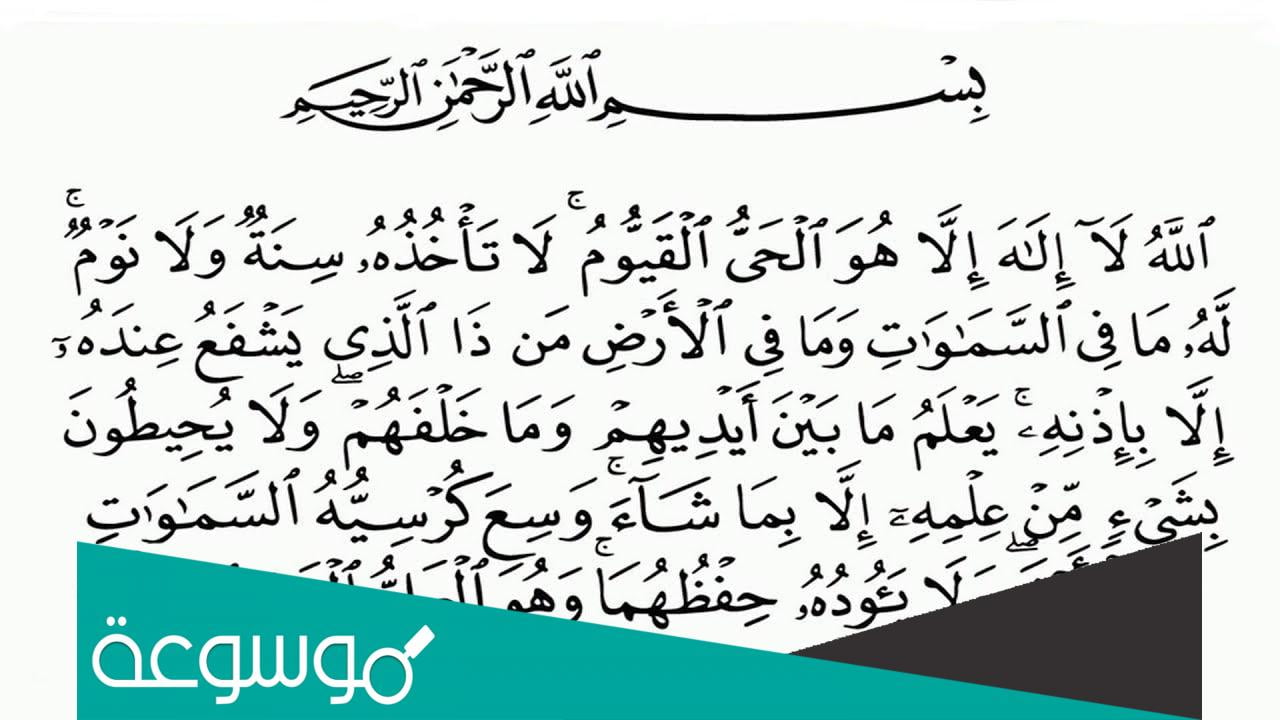 بِسْمِ ٱللَّهِ ٱلرَّحْمَٰنِ ٱلرَّحِيمِ
ٱللَّهُ لَآ إِلَٰهَ إِلَّا هُوَ ٱلْحَىُّ ٱلْقَيُّومُ ۚ لَا تَأْخُذُهُۥ سِنَةٌ وَلَا نَوْمٌ ۚ
لَّهُۥ مَا فِى ٱلسَّمَٰوَٰتِ وَمَا فِي ٱلْأَرْضِ مَن ذَا ٱلَّذِى يَشْفَعُ عِندَهُۥٓ
إِلَّا بِإِذْنِهِۦ ۚ يَعْلَمُ مَا بَيْنَ أَيْدِيهِمْ وَمَا خَلْفَهُمْ ۖ وَلَا يُحِيطُونَ
بِشَىْءٍ مِّنْ عِلْمِهِۦٓ إِلَّا بِمَا شَآءَ ۚ وَسِعَ كُرْسِيُّهُ ٱلسَّمَٰوَٰتِ
وَلَا يَـُٔودُهُۥ حِفْظُهُمَا ۚ وَهُوَ
موسوعة